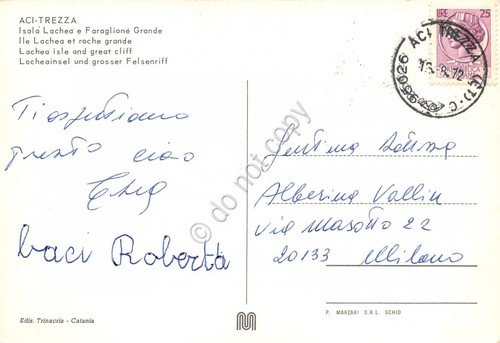 ACI-TREZZA
Isola Lachea e Faraglione Grande
Ile Lachea et roche grande
Lachea isle and great cliff
Lacheainsel und grosser Felsenriff
LIRE 25
95026 ACI TREZZA (CT)
Ti aspettiamo
presto ciao
baci Roberta
Gentma
Albertina Vallin
Via Masotto 22
20133 Milano
Ediz. Trinacria - Catania
P. MARZARI S.R.L. SCHIO
do not copy